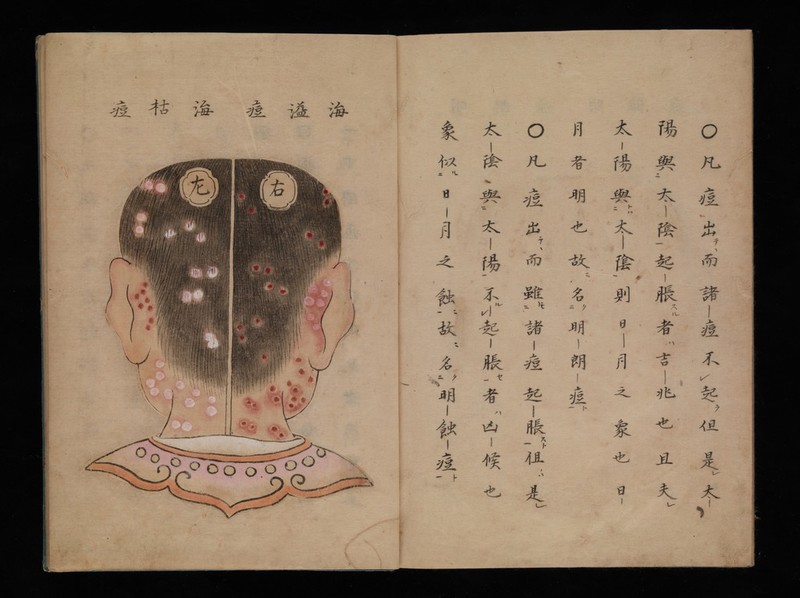 〇凡痘出而諸痘不起但是太
陽與太陰起脹者吉兆也且夫
太陽與太陰則日月之象也日
月者明也故名明朗痘
〇凡痘出而雖諸痘起脹但是
太陰與太陽不起脹者凶候也
象似日月之蝕故名明蝕痘
海溢痘
海枯痘
右
左